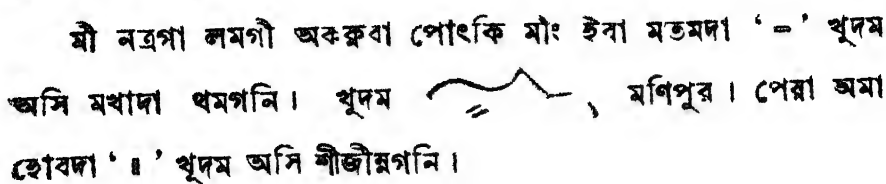 মী নত্রগা লমগী অকক্নবা পোৎকি মীং ইবা মতমদা ‘ = ’ খূদম
অসি মখাদা থমগনি। খূদম , মণিপুর। পেরা অমা
হোবদা ‘ ॥ ’ খূদম অসি শীজীন্নগনি।